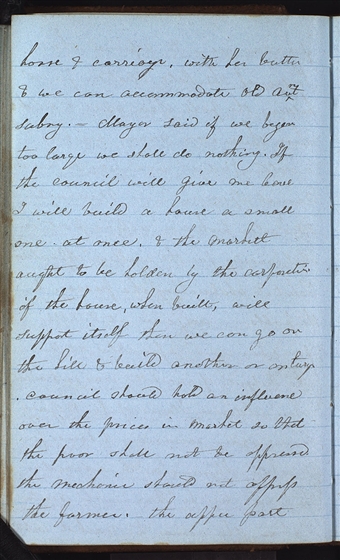 horse & carriage, with her butter
& we can accommodate old aunt
subry. – Mayor said if we began
too large we shall do nothing. If
the council will give me leave
I will build a house a small
one at once, & the market
aught to be holden by the corporation
if the house, when built, will
support itself then we can go on
the hill & build another or enlarge
. council should hold an influence
over the prices in market so that
the poor shall not be oppressed
the mechanic should not oppress
the farmer. the upper part